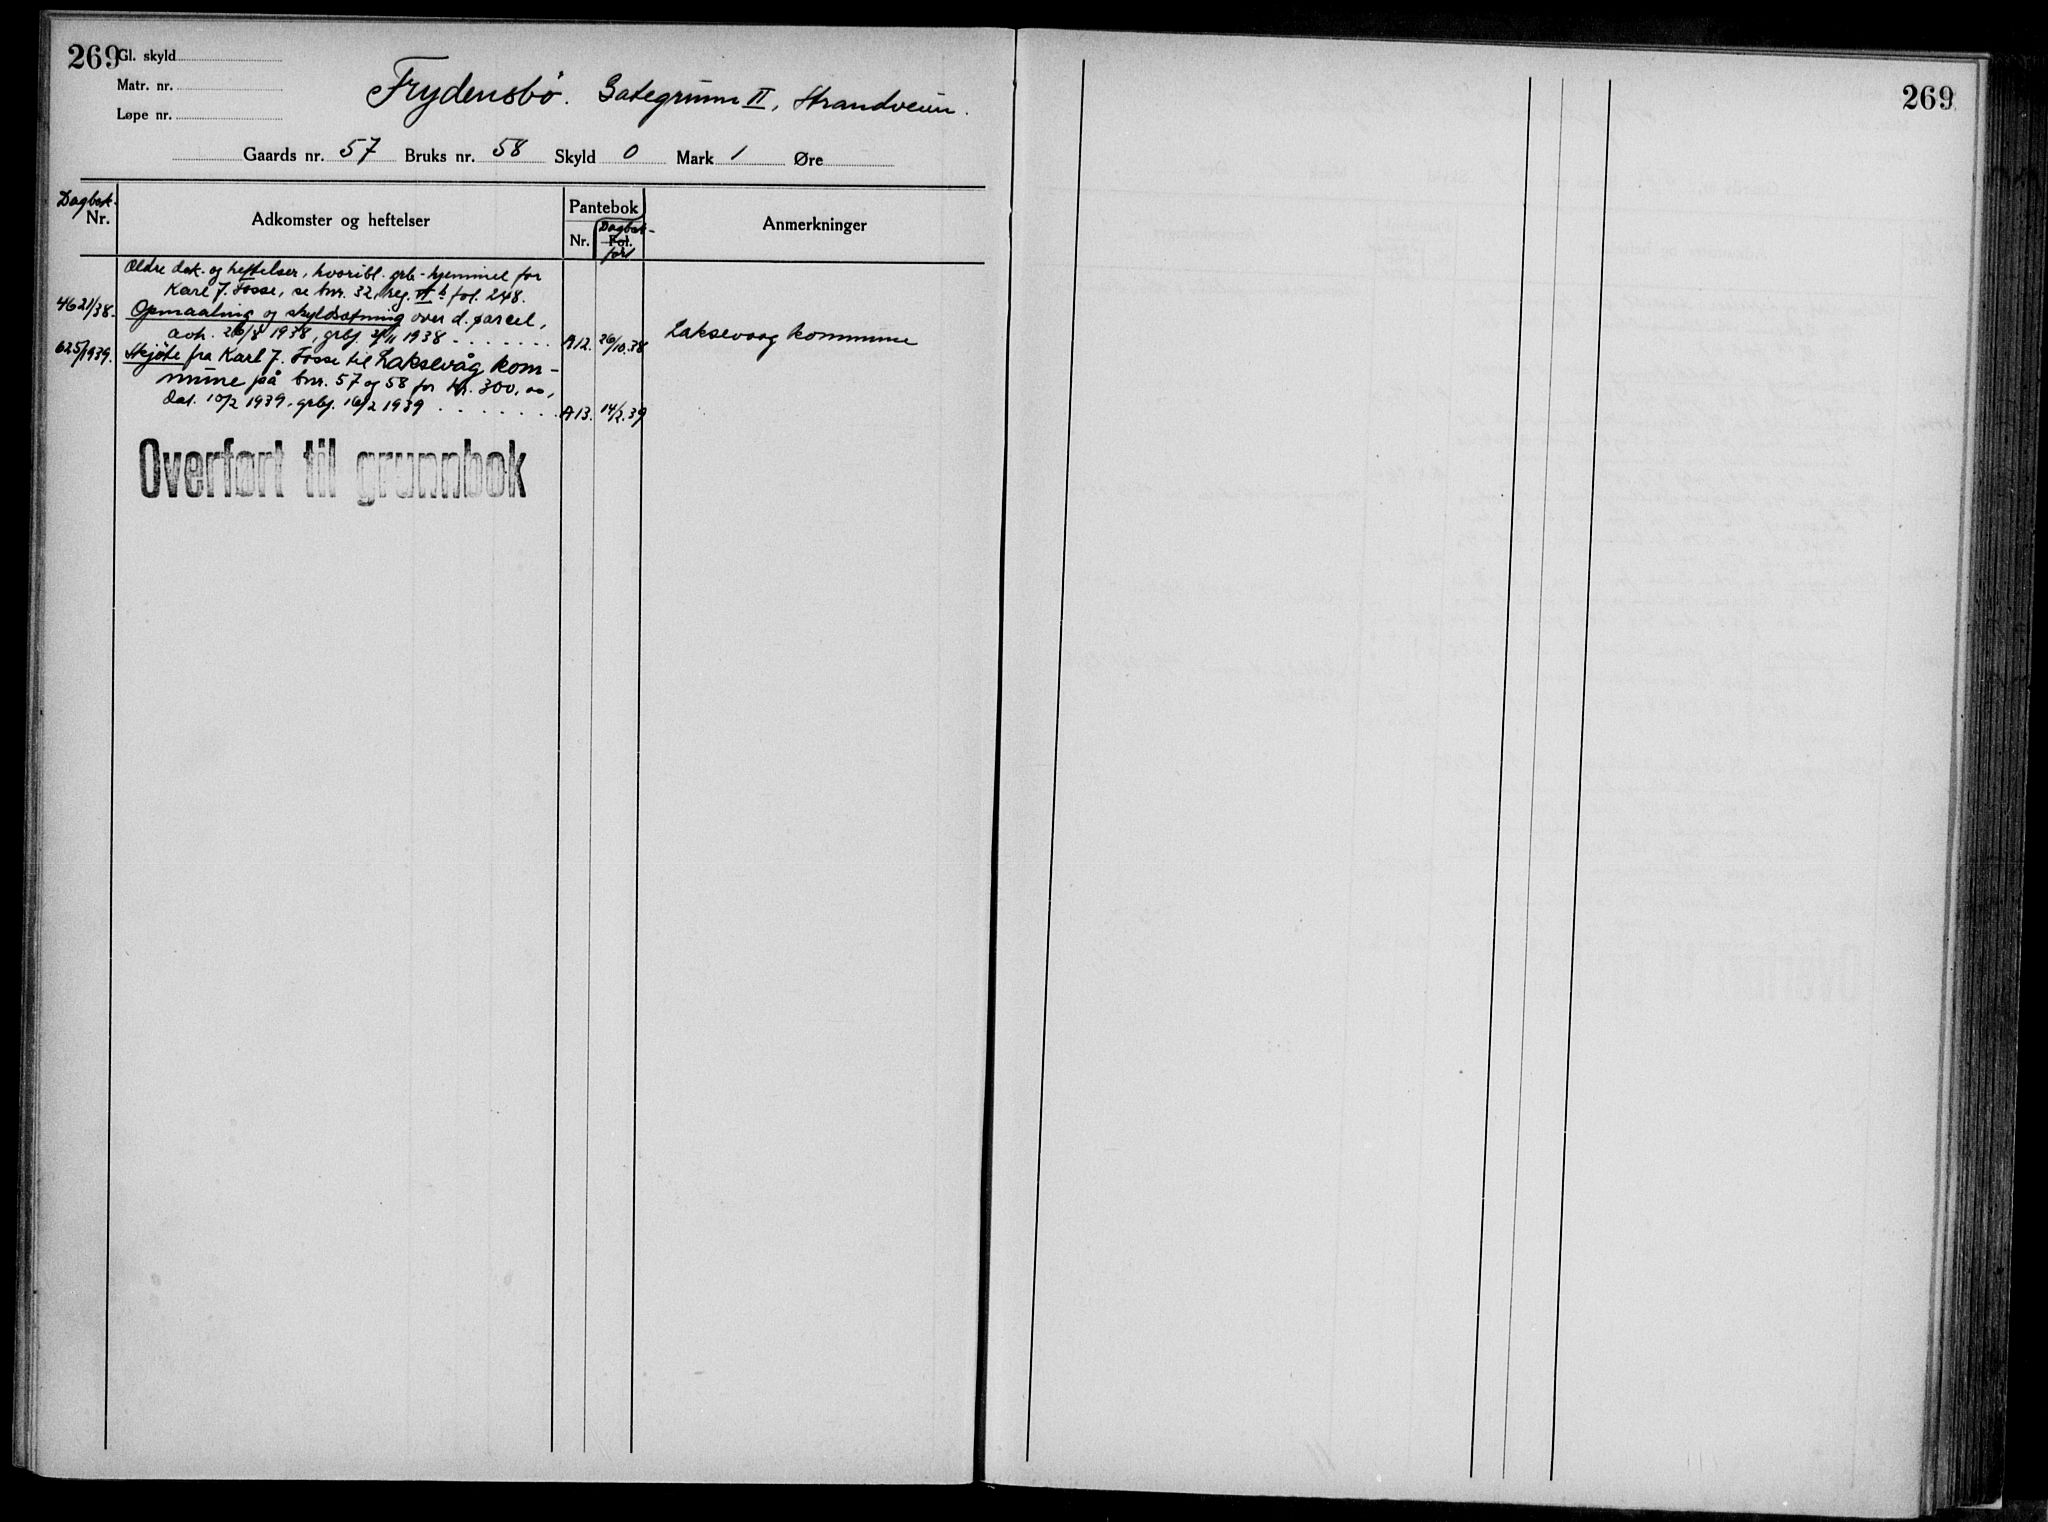 269
Gl. skyld
Matr. nr.
Løpe nr.
Frydensbø. Gategrunn II, Strandveien.
Gaards nr. 57 Bruks nr. 58 Skyld 0 Mark 1 Øre
Dagbok-
Nr.
Adkomster og heftelser
Pantebok
Nr.
Dagbok-
Fol.
ført
Anmerkninger
Ældre dok. og heftelser, hvoribl. grb-hjemmel for
Karl J. Fosse, se bnr. 32, reg. fol. 248.
4621/38. Opmaaling og skyldsætning over d. parcel,
avh. 26/8 1938, grbf. 1938 . . . . . . . A12. 26/10.38 Laksevaag kommune
625/1939. Skjøte fra Karl J. Fosse til Laksevåg kom-
mune på bnr. 57 og 58 for kr. 300,00,
dat. 10/2 1939. grbf. 16/2 1939 . . . . . . . . A13. 14/2.39
Overført til grunnbok
269